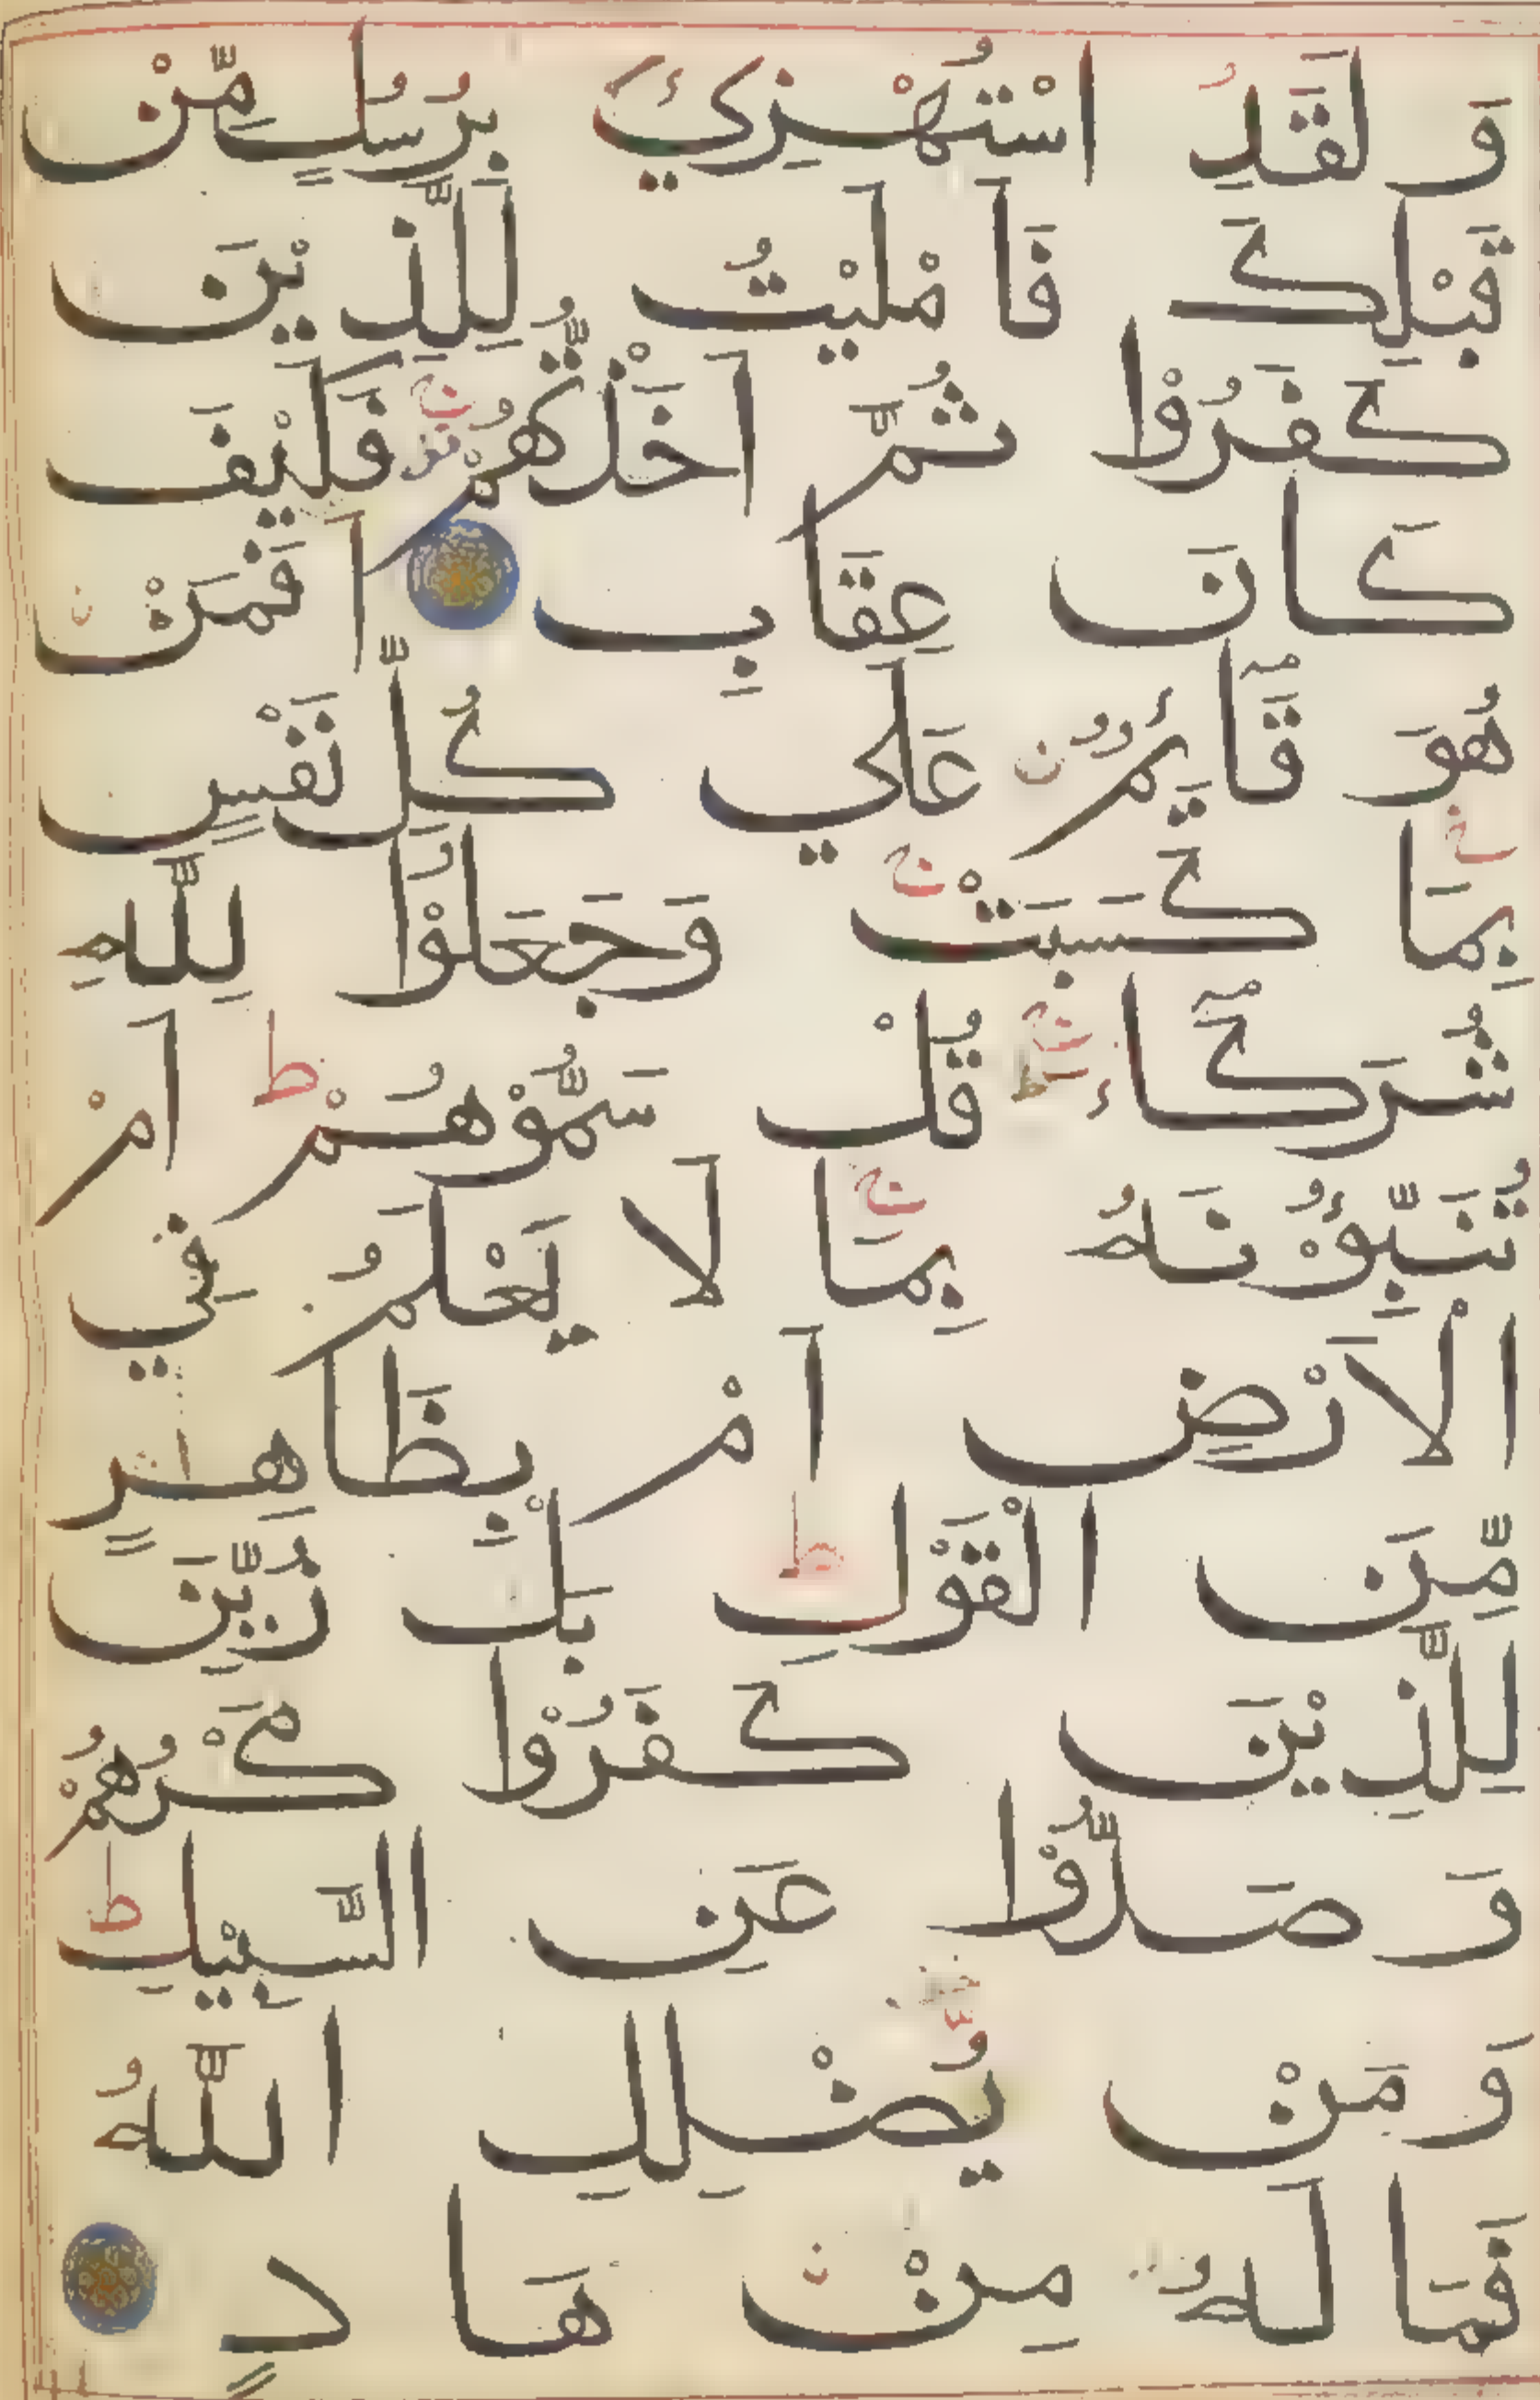 وَ لَقَدِ اسْتُهْزِئَ بِرُسُلٍ مِّنْ
قَبْلِكَ فَاَ مْلَيْتُ لِلَّذِ يْنَ
كَفَرُوْا ثُمَّ اَخَذْتُّهُمْ فَكَيْفَ
كَانَ عِقَابِ اَفَمَنْ
هُوَ قَآئِمٌ عَلٰي كُلِّ نَفْسٍ
بِمَا كَسَبَتْ وَجَعَلُوْا لِلّٰهِ
شُرَكَآءَ قُلْ سَمُّوْهُمْ اَمْ
تُنَبِّؤُنَهُ بِمَا لَا يَعْلَمُ فِي
الْاَرْضِ اَمْ بِظَاهِرٍ
مِّنَ الْقَوْلِ بَلْ زُيِّنَ
لِلَّذِيْنَ كَفَرُوْا مَكْرُهُمْ
وَ صَدُّوْا عَنِ السَّبِيْلِ
وَ مَنْ يُضْلِلِ اللّٰهُ
فَمَا لَهُ مِنْ هَا دٍ